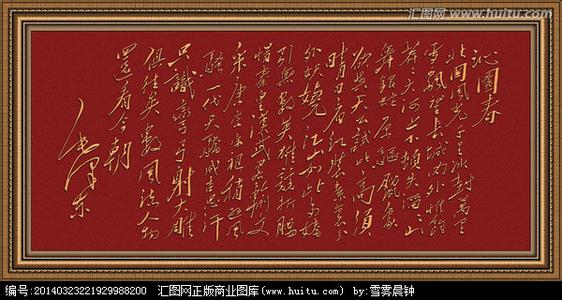 汇图网 www.huitu.com
沁園春
北國風光千里冰封萬里
雪飄望長城內外惟餘
莽莽大河上下頓失滔滔山
舞銀蛇原驅臘象
欲與天公試比高須
晴日看紅裝素裹分
外妖嬈江山如此多嬌
引無數英雄競折腰
惜秦皇漢武略輸文
采唐宗宋祖稍遜風
騷一代天驕成吉思汗
只識彎弓射大雕
俱往矣數風流人物
還看今朝
毛澤東
编号:20140323221929988200 汇图网正版商业图库(www.huitu.com) by:雪雾晨钟